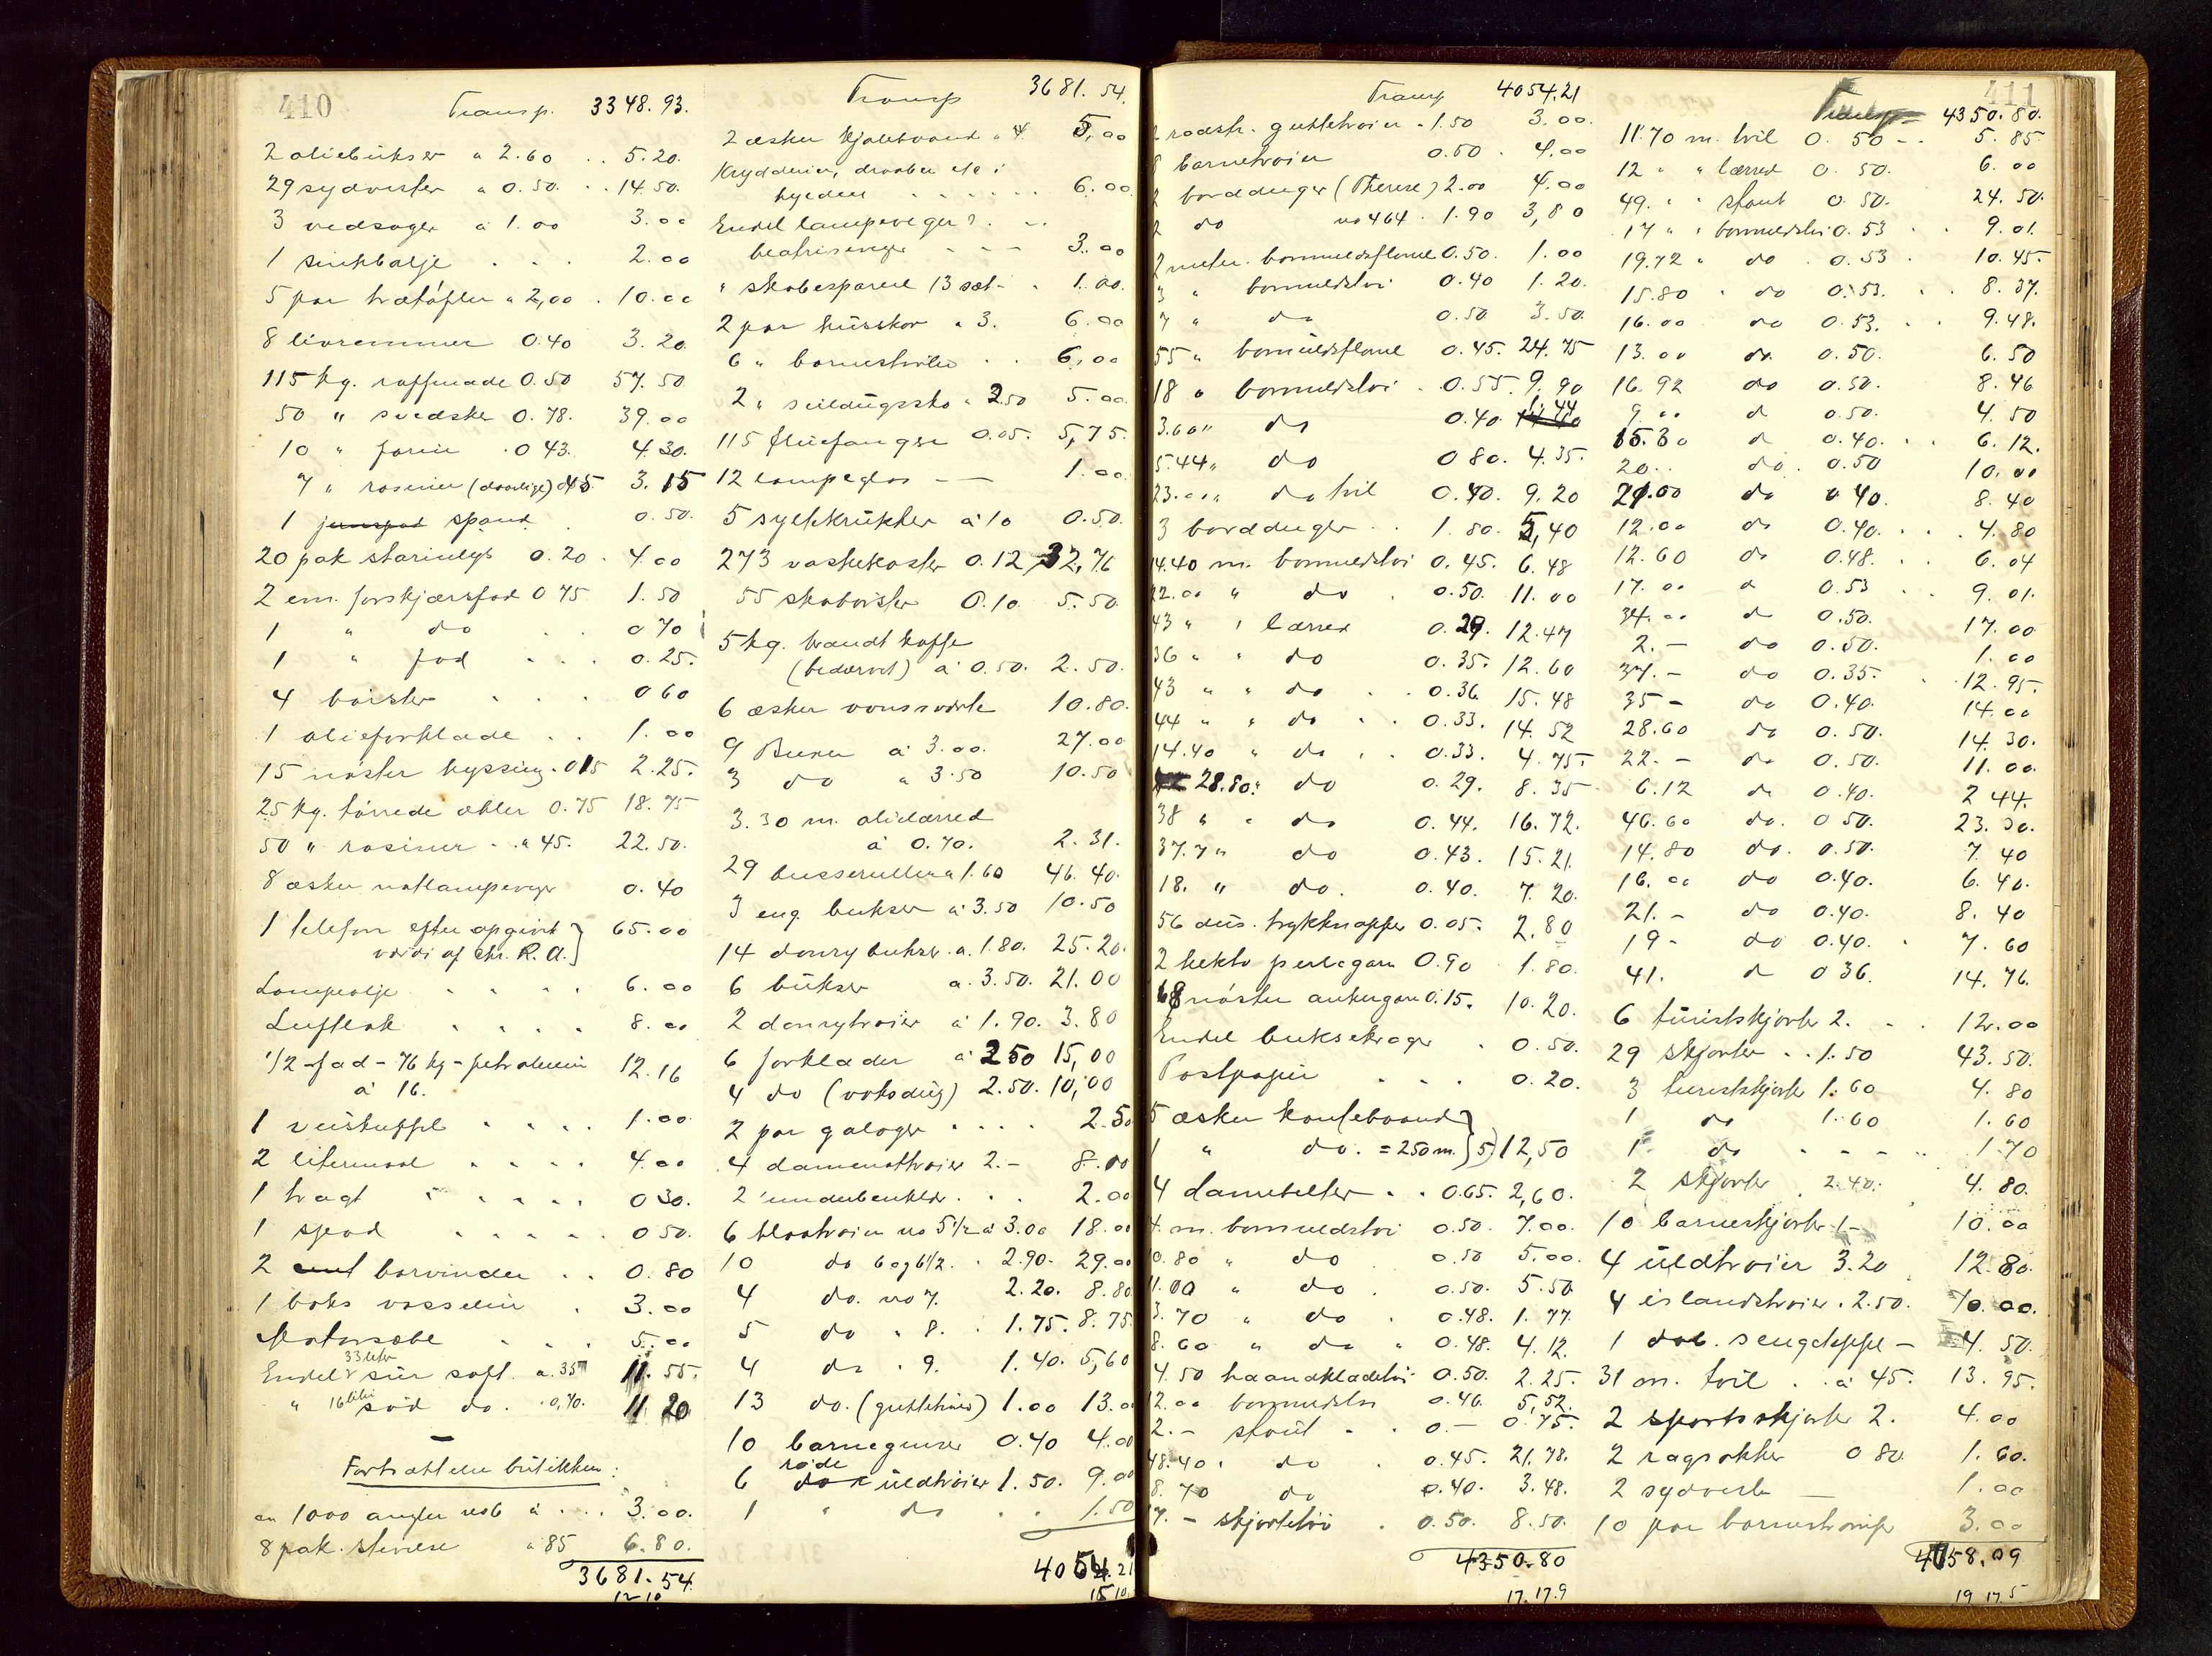 410
Transp. 3348.93.
2 oliebükser a 2.60 . . 5.20.
29 sydvester a 0.50. . . 14.50.
3 vedsager a 1.00 3.00
1 sinkbalje . . . 2.00
5 par trætøfler a 2,00 . 10.00
8 livremmer 0.40 3.20
115 kg. raffinade 0.50 57.50
50 " svedsker 0.78. 39.00
10 " farin . 0 43. 4.30.
7 " rosiner (daarlige) 045 3.15
1 spand 0.50.
20 pak starinlys 0.20 . 4.00
2 em. forskjærsfad 0 75 1.50
1 " do . . 0 70
1 " fad . . . 0.25.
4 børster . . . 0 60
1 olieforklæde . . 1.00
15 nøster hyssing . 015 2.25.
25 kg. tørrede æbler 0.75 18.75
50 " rosiner . . a 45. 22.50.
8 æsker natlampeveger 0.40
1 telefon efter opgivit } 65.00
værdi af Chr. R. A. }
Lampeolje . . . . 6.00
Luftlak . . . . 8.00
1/2 fad - 76 kg - petroleum 12.16
a 16.
1 . . . . 1.00.
2 litermaal . . . . 4.00
1 tragt . . . . 0 30.
1 spad . . . . . 0 50.
2 borvinder . . 0.80
1 boks vasselin . 3.00
Motorsæbe . . 5.00
33 liter
Endel sür saft. a. 35 11.55.
" 16 liter sød do. . 0,70. 11 20
Fortsættelse bütikken:
ca 1000 angler no 6 a . . . 3.00.
8 pak. stivelse a 85 6.80.
3681.54
12 10
Transp 3681.54.
2 æsker kjolebaand a 4 5,00
Krydderier, draaber etc i
hylden . . . . . . 6.00
Endel lampeveger & . . .
beatriseveger . . . 3.00
" skobesparere 13 sæt . 1.00.
2 par hüsskor a 3. 6.00
6 " . . 6,00
2 " seildügssko a 2.50 5.00.
115 flüefangere 0.05. 5,75.
12 lampeglas — — 1.00.
5 syltekrükker a 10 0.50.
273 vaskekoster 0.12 32,76
55 skobørster 0.10. 5.50.
5 kg. brændt kaffe
(bedærvet) a 0.50. 2.50.
6 æsker 10.80.
9 Buser a 3.00. 27.00
3 do " 3.50 10.50
3.30 m. olielærred
a 0.70. 2.31.
29 busseruller a 1.60 46.40.
3 eng. bukser a 3.50 10.50
14 dongry bukser a. 1.80. 25.20.
6 bükser a. 3.50. 21.00
2 dongrytrøier a 1.90. 3.80
6 forklæder a 2 50 15,00
4 do (voksdüg) 2.50. 10,00
2 par galoger . . . . 2.50
4 damenattrøier 2.- 8.00
2 underbenklær . . . 2.00
6 blaatrøier no 5 1/2 a 3.00 18.00
10 do 6 og 6 1/2. . 2.90. 29.00
4 do. no 7. 2.20. 8.80
5 do " 8. . 1.75. 8.75
4 do . 9. 1.40. 5,60
13 do. (guttetrøier) 1.00 13.00
10 barnegenser 0.40 4.00
6 røde üldtrøier 1.50. 9.00
1 " do . . 1.50
4054.21
15 10
411
Transp 4054.21
guttetrøier - 1.50 3.00.
8 barnetrøier 0.50 . 4.00
2 bordduger (Therese) 2.00 4.00
2 do no 464 . 1.90 3,80
2 meter. bomuldsflonel 0.50. 1.00
3 " bomuldstøi 0.40 1.20.
7 " do 0.50 3.50.
55 " bomüldsflonel 0.45. 24.75
18 " bomuldstøi . 0.55. 9.90
3.60 " do 0.40. 1.44
5.44 " do 0 80. 4.35.
23.00 " do tvil 0.40. 9.20
3 bordduger . . 1.80. 5,40
14.40 m. bomuldstøi 0.45. 6.48
22.00 " do . 0.50. 11.00
43 " " lærred 0.29. 12.47
36 " " do 0.35. 12.60
43 " " do . . 0.36. 15.48
44 " " do . . 0.33. 14.52
14.40 " do . . 0.33. 4.75.
28.80. " do 0.29. 8.35
38 " " do 0.44. 16.72.
37.7 " do 0.43. 15.21.
18. " do. 0.40. 7.20.
56 düs. trykknapper 0.05. 2.80
2 hekto perlegarn 0.90 1.80.
68 nøster ankergarn 0.15. 10.20.
Endel buksekroger . 0.50.
Postpapir . . . 0.20.
5 æsker kantebaand }
1 " do. = 250 m. } 5) 12,50
4 damebelter . . 0.65. 2,60.
m. bomuldstøi 0.50. 7.00.
0.80 " do 0.50 5.00.
11.00 " do . 0.50. 5.50.
3.70 " do . 0.48. 1.77.
8.60 " do " 0.48. 4.12.
4.50 haandklædetøi 0.50. 2.25.
12.00 bomuldstøi 0.46. 5,52.
2. - stout . . 0.- 0.75.
48.40 . do . 0.45. 21.78.
8.70 do 0.40. 3.48.
17. - skjortetøi . 0.50. 8.50.
4350.80
17.17.9
Transp 4350.80.
11.70 m. tvil 0.50 - . 5.85
12 " " lærred 0.50. 6.00
49. " " stout 0.50. 24.50.
17 " " bomuldstøi 0.53 . . 9.01.
19.72 " do . 0.53 . 10.45.
15.80 " do 0.53. . . 8.37.
16.00 do 0.53. . . 9.48.
13.00 do. 0.50. 6.50
16.92 do 0.50. 8.46
9.00 d 0.50. 4.50
15.30 d 0.40. . . 6.12.
20.. do. 0.50 10.00
21.00 do 0 40. 8.40
12.00 do 0.40. . . . 4.80
12.60 do 0.48. . . 6.04
17.00 d 0.53 . . 9.01.
34.00 d 0.50. 17.00
2.- do 0.50. 1.00
37.- do 0.35. . 12.95.
35 - do 0.40. 14.00
28.60 do 0.50. 14.30.
22.- do 0.50. 11.00.
6.12 d 0.40. 2 44.
46.60 do. 0 50. 23.30.
14.80 do. 0.50. 7.40
16.00 do 0.40. 6.40.
21.- do 0.40. 8.40
19- do 0.40. . 7.60
41. d 0 36. 14.76.
6 türistskjorter 2. . . 12.00
29 skjorter . . 1.50 43.50.
3 turistskjorter 1.60 4.80
1 do 1.60 1.60
1 do . . . . 1.70
2 skjorter . 2.40. 4.80.
10 barneskjorter 1- 10.00
4 üldtrøier 3.20 12.80.
4 islandstrøier . 2.50. 10.00.
1 dob. sengeteppe - 4.50.
31 m. tvil . . a 45. 13.95.
2 sportsskjorter 2. 4.00
2 ragsokker 0 80 1.60.
2 sydvester — 1.00
10 par barnestrømper 3.00
4758.09
19 17 5